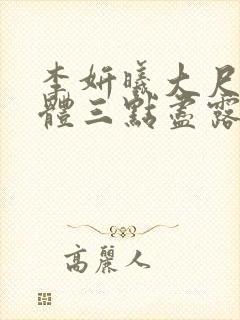 李妍曦大尺
體三點盡露
高麗人